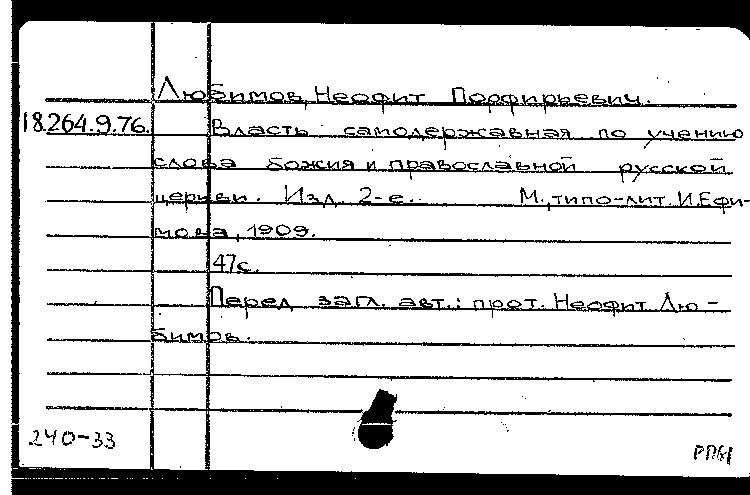 Любимов, Неофит Порфирьевич.
18.264.9.76. Власть самодержавная по учению
слова божия и православной русской
церкви. Изд. 2-е. М., типо-лит. И.Ефи-
мова, 1909.
47с.
Перед загл. авт.: прот. Неофит Лю-
бимов.
240-33